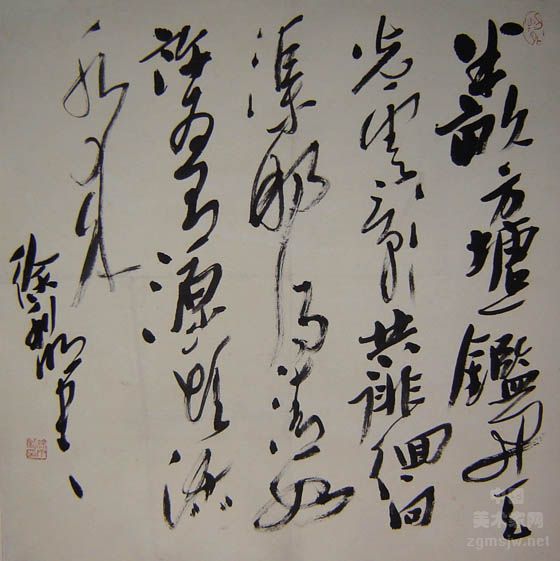 半畝方塘一鑑開天
光雲影共徘徊問
渠那得清如
許為有源頭活
水來
徐利明書
中国
美术家网
zgmsjw.net